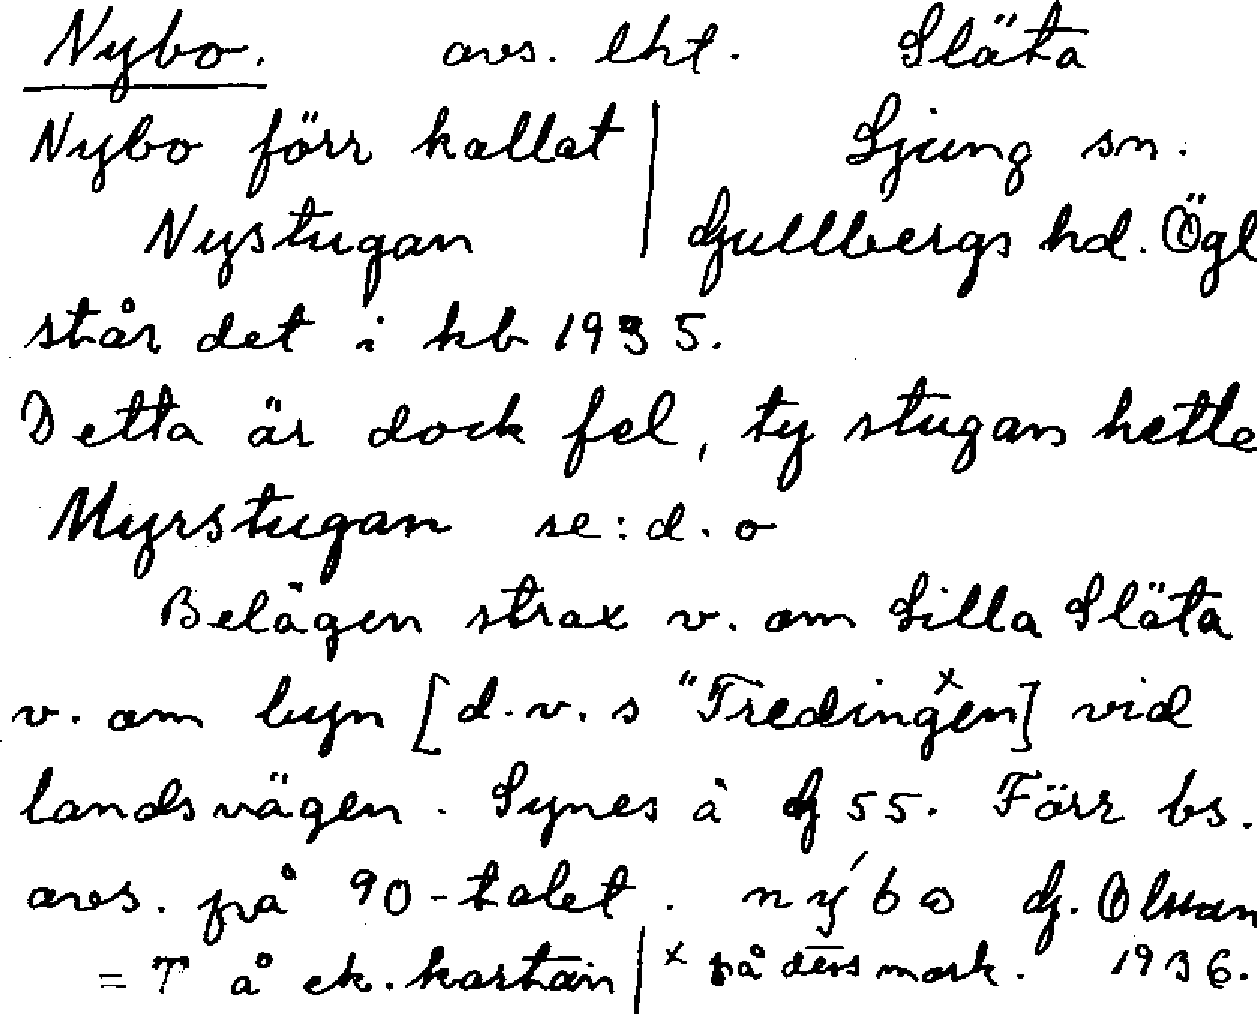 Nybo. avs. lht. Släta
Nybo förr kallat | Ljung sn.
Nystugan | Gullbergs hd. Ögl
står det i kb 1935.
Detta är dock fel, ty stugan hette
Myrstugan se: d. o
Belägen strax v. om Lilla Släta
v. om byn [d.v.s "Tredingˣen] vid
landsvägen. Synes å G 55. Förr bs.
avs. på 90-talet. nýbω G. Olsson
= T å ek. kartan | x på dess mark. 1936.